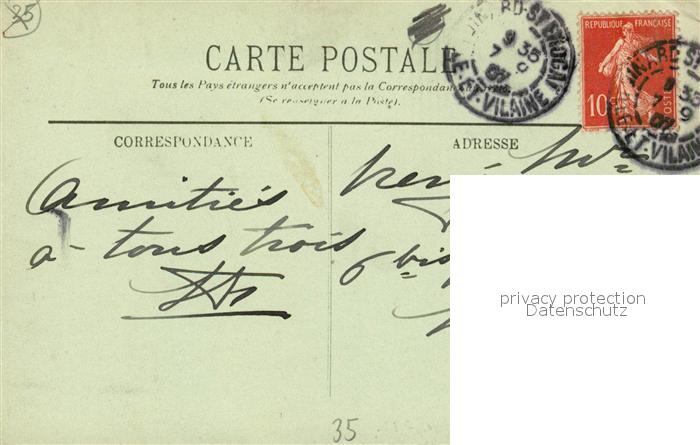 35
CARTE POSTALE
Tous les Pays étrangers n'acceptent pas la Correspondance
(Se renseigner à la Poste).
REPUBLIQUE FRANÇAISE
10
POSTES
DINARD-ST ENOGAT
9 35
7 9
07
ILLE-ET-VILAINE
CORRESPONDANCE
ADRESSE
Amitiés
à tous trois
6 bis
privacy protection
Datenschutz
35